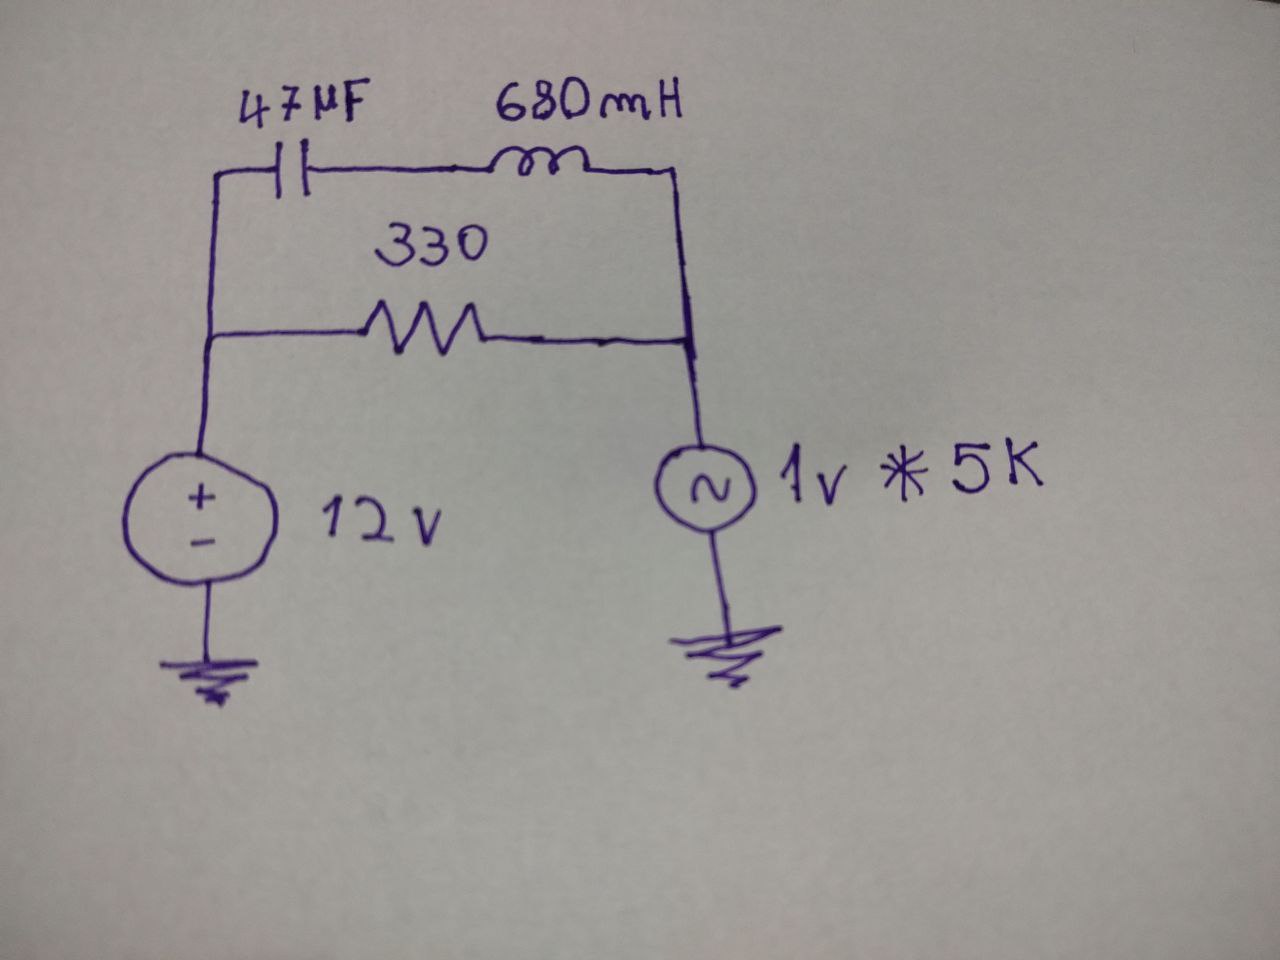 47µF 680mH
330
+
-
12v
~
1v * 5K